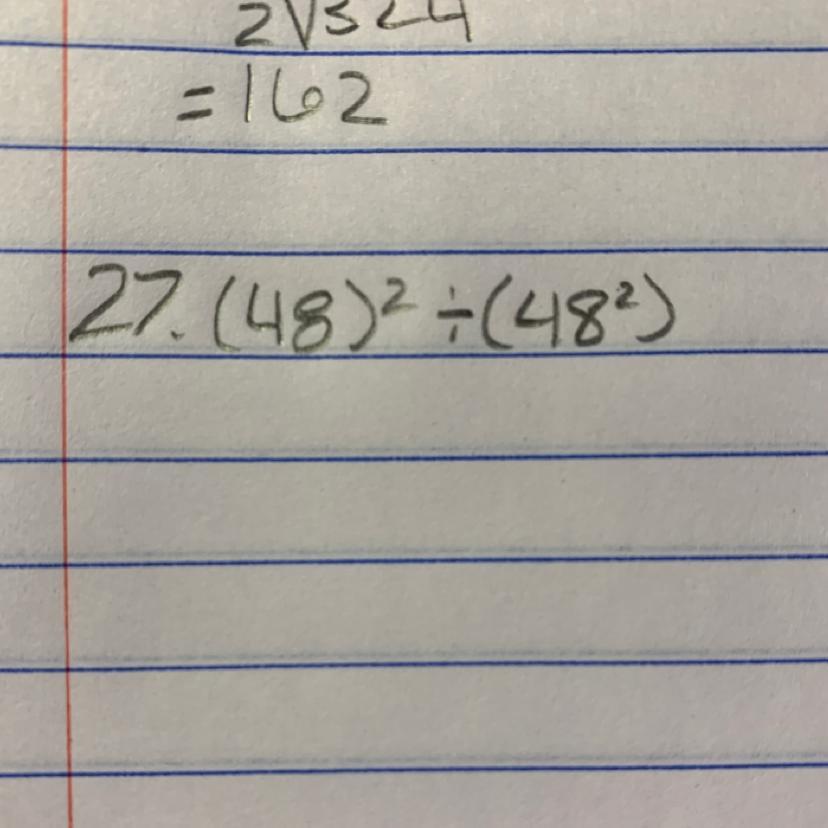 2√324
= 162
27. (48)² ÷ (48²)